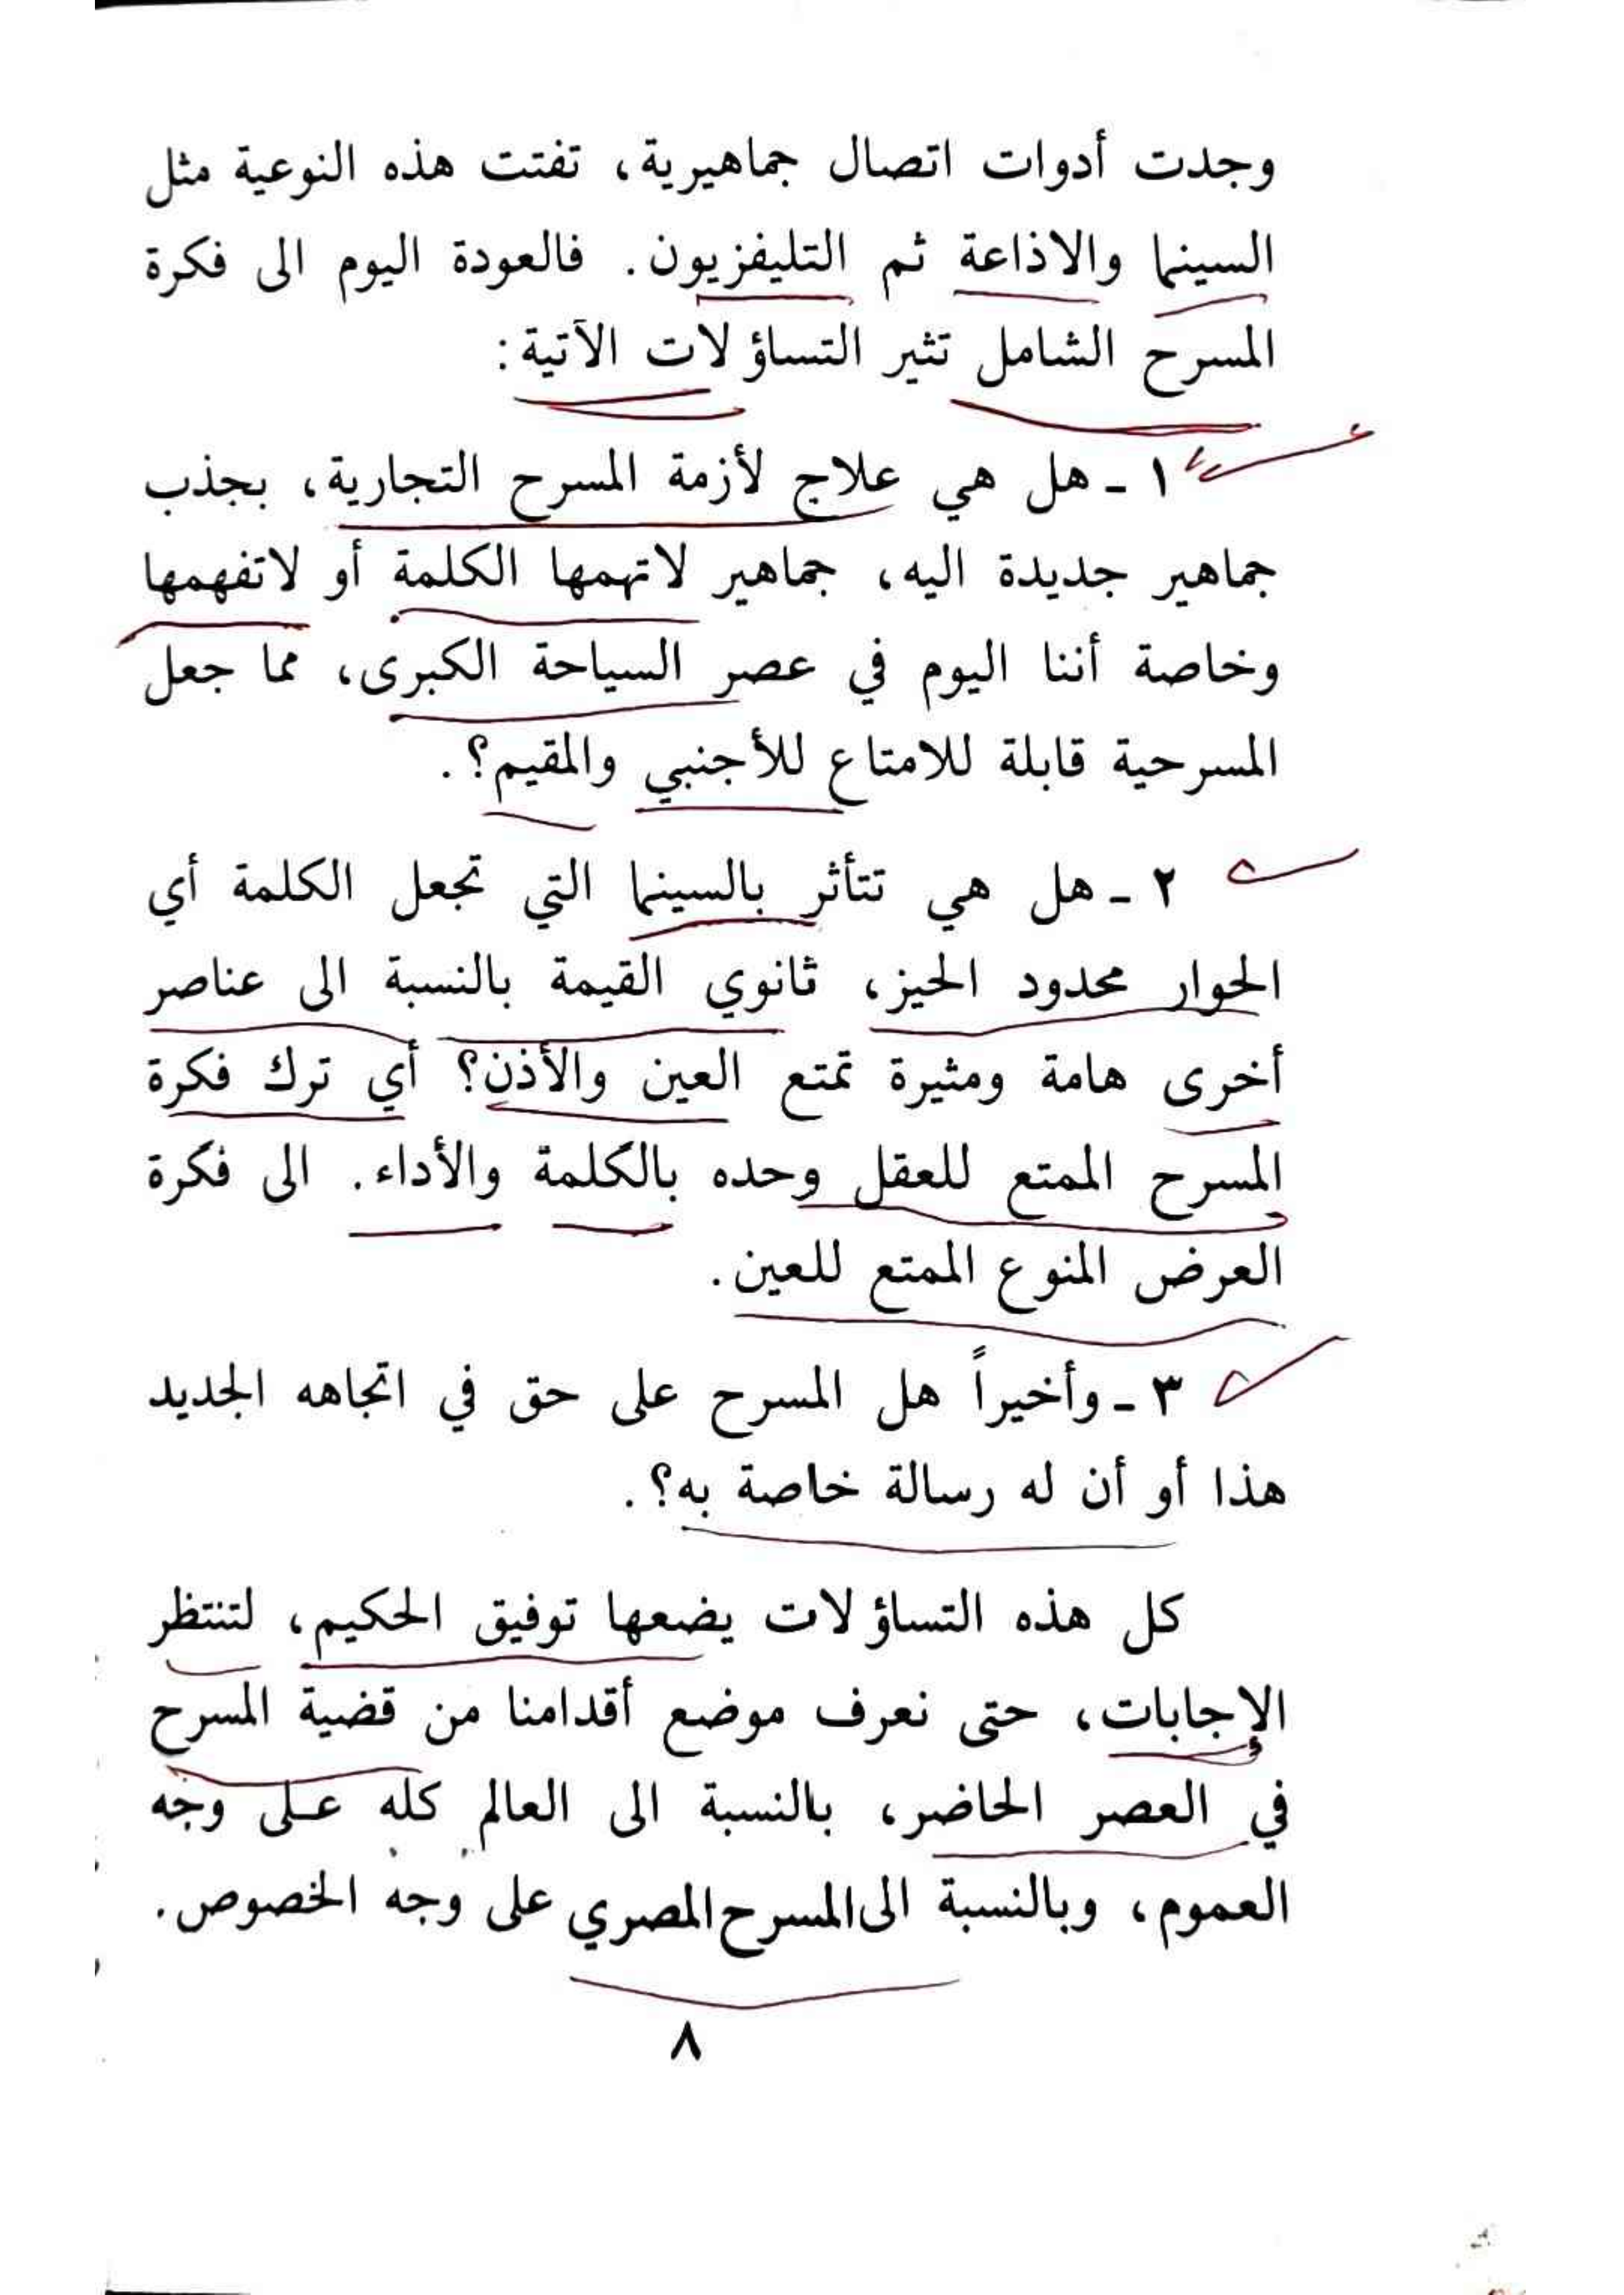 وجدت أدوات اتصال جماهيرية، تفتت هذه النوعية مثل
السينما والاذاعة ثم التليفزيون. فالعودة اليوم الى فكرة
المسرح الشامل تثير التساؤلات الآتية:
١ - هل هي علاج لأزمة المسرح التجارية، بجذب
جماهير جديدة اليه، جماهير لاتهمها الكلمة أو لاتفهمها
وخاصة أننا اليوم في عصر السياحة الكبرى، مما جعل
المسرحية قابلة للامتاع للأجنبي والمقيم؟.
٢ - هل هي تتأثر بالسينما التي تجعل الكلمة أي
الحوار محدود الحيز، ثانوي القيمة بالنسبة الى عناصر
أخرى هامة ومثيرة تمتع العين والأذن؟ أي ترك فكرة
المسرح الممتع للعقل وحده بالكلمة والأداء. الى فكرة
العرض المنوع الممتع للعين.
٣ - وأخيراً هل المسرح على حق في اتجاهه الجديد
هذا أو أن له رسالة خاصة به؟.
كل هذه التساؤلات يضعها توفيق الحكيم، لتنتظر
الإجابات، حتى نعرف موضع أقدامنا من قضية المسرح
في العصر الحاضر، بالنسبة الى العالم كله على وجه
العموم، وبالنسبة الى المسرح المصري على وجه الخصوص.
٨